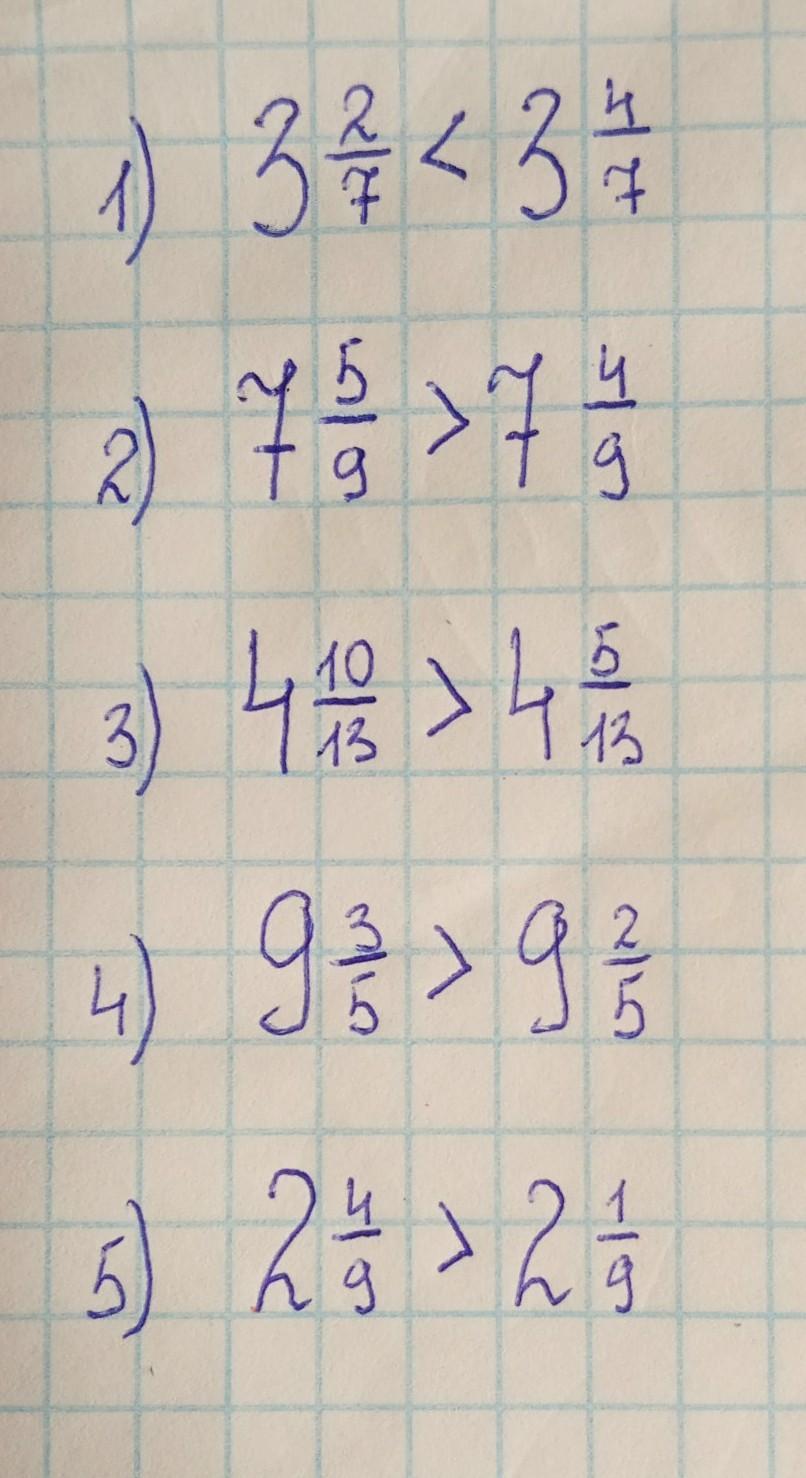 1) 3 2/7 < 3 4/7
2) 7 5/9 > 7 4/9
3) 4 10/13 > 4 5/13
4) 9 3/5 > 9 2/5
5) 2 4/9 > 2 1/9